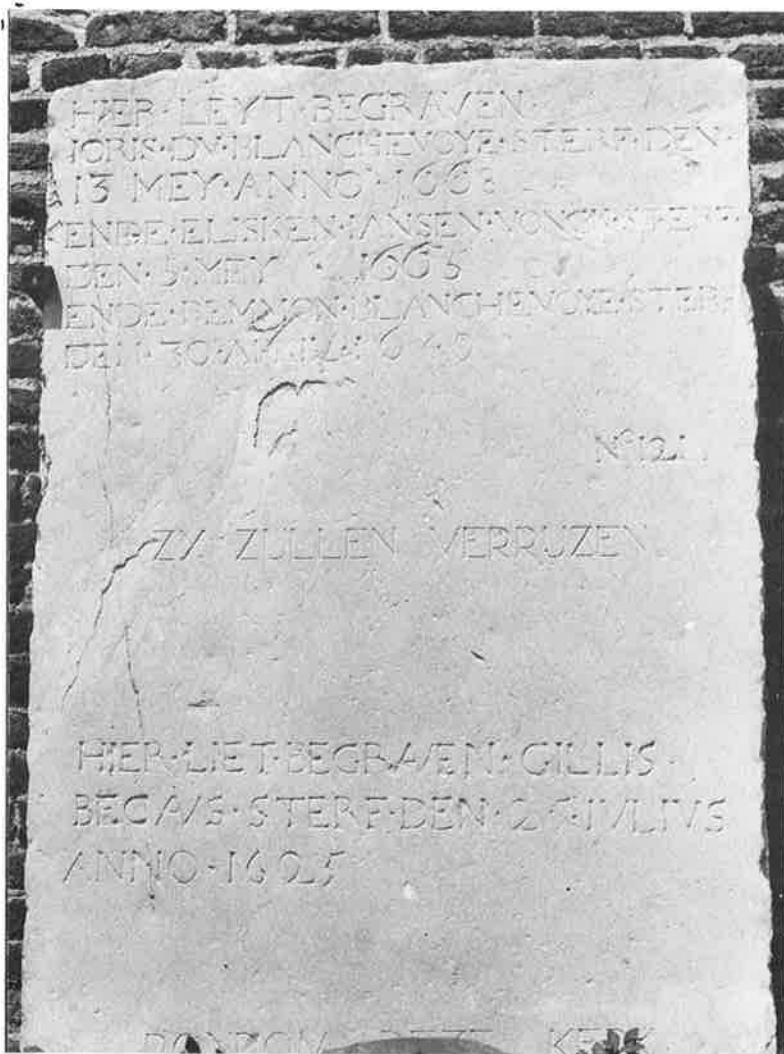 HIER·LEYT·BEGRAVEN
IORIS·DV·BLANCHEVOYE·STERF·DEN·
13 MEY·ANNO·1668
ENDE·ELISKEN·IANSEN·VONCK·STERF·
DEN·5·MEY 1665
ENDE·REMŸON·BLANCHEVOYE·STERF·
DEN·30·APRIL·1649
Nº 121
ZY·ZULLEN VERRIJZEN
HIER·LIET·BEGRAVEN·GILLIS·
BECAVS·STERF·DEN·26·IVLIVS
ANNO·1625
RONDOM DEZE KERK